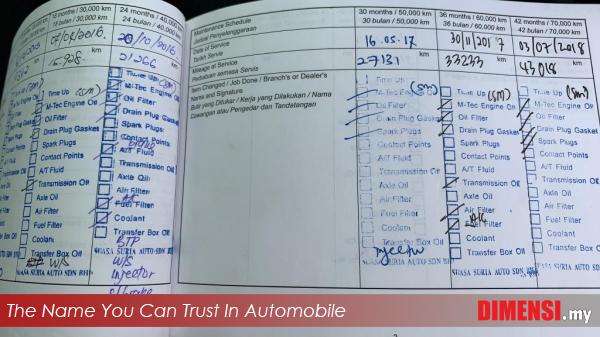 18 months / 30,000 km
18 bulan / 30,000 km
km
Time Up (SM)
M-Tec Engine Oil
Oil Filter
Drain Plug Gasket
Spark Plugs
Contact Points
A/T Fluid
Transmission Oil
Axle Oil
Air Filter
Fuel Filter
Coolant
Transfer Box Oil
W/S
24 months / 40,000 km
24 bulan / 40,000 km
20/10/2016
21266 km
Time Up (SM)
M-Tec Engine Oil
Oil Filter
Drain Plug Gasket
Spark Plugs
Contact Points
A/T Fluid
Transmission Oil
Axle Oil
Air Filter
Fuel Filter
Coolant
Transfer Box Oil
BTP
W/S
Injector
Maintenance Schedule
Jadual Penyelenggaraan
Date of Service
Tarikh Servis
Mileage at Service
Perbatuan semasa Servis
Item Changed / Job Done / Branch's or Dealer's
Name and Signature
Butir yang Ditukar / Kerja yang Dilakukan / Nama
Cawangan atau Pengedar dan Tandatangan
30 months / 50,000 km
30 bulan / 50,000 km
16.05.17
27131 km
Time Up
M-Tec Engine Oil (SM)
Oil Filter
Drain Plug Gasket
Spark Plugs
Contact Points
A/T Fluid
Transmission Oil
Axle Oil
Air Filter
Fuel Filter
Coolant
Transfer Box Oil
SUASA SURIA AUTO SDN BHD
36 months / 60,000 km
36 bulan / 60,000 km
30/11/2017
33233 km
Time Up (SM)
M-Tec Engine Oil
Oil Filter
Drain Plug Gasket
Spark Plugs
Contact Points
A/T Fluid
Transmission Oil
Axle Oil
Air Filter
Fuel Filter
Coolant
Transfer Box Oil
42 months / 70,000 km
42 bulan / 70,000 km
03/07/2018
43018 km
Time Up (SM)
M-Tec Engine Oil
Oil Filter
Drain Plug Gasket
Spark Plugs
Contact Points
A/T Fluid
Transmission Oil
Axle Oil
Air Filter
Fuel Filter
Coolant
Transfer Box Oil
The Name You Can Trust In Automobile
DIMENSI.my